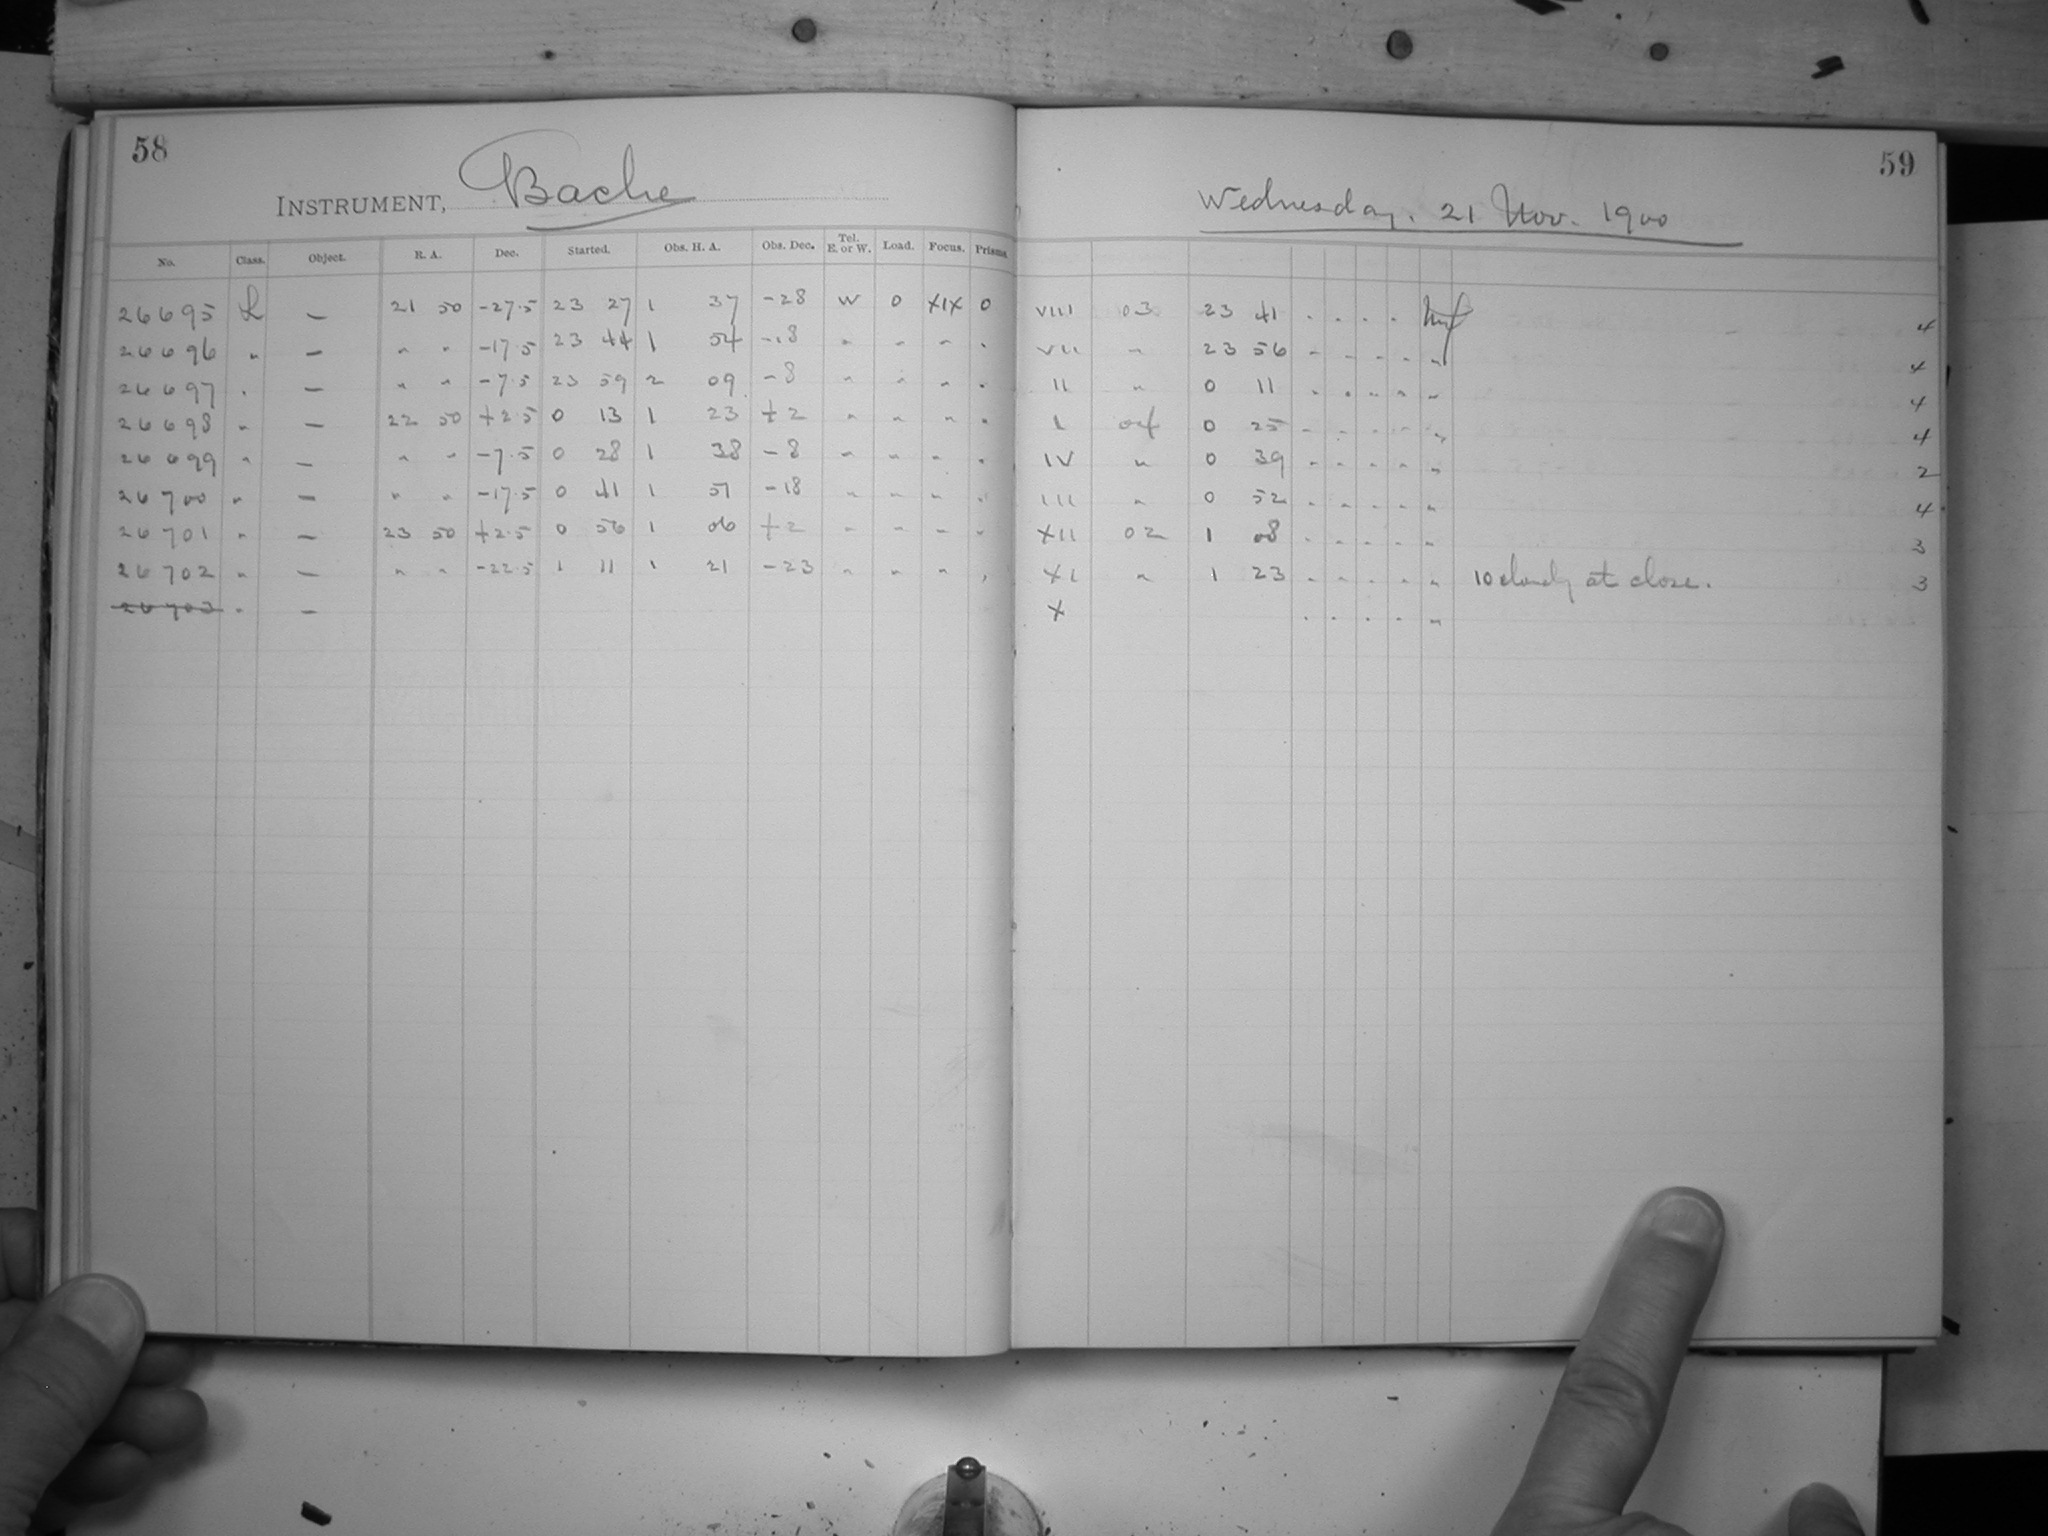 58
INSTRUMENT, Bache
No. Class. Object. R. A. Dec. Started. Obs. H. A. Obs. Dec. Tel. E. or W. Load. Focus. Prisms
26695 L — 21 50 -27.5 23 27 1 37 -28 W 0 XIX 0
26696 " — " " -17.5 23 44 1 54 -18 " " " "
26697 " — " " -7.5 23 59 2 09 -8 " " " "
26698 " — 22 50 +2.5 0 13 1 23 +2 " " " "
26699 " — " " -7.5 0 28 1 38 -8 " " " "
26700 " — " " -17.5 0 41 1 51 -18 " " " "
26701 " — 23 50 +2.5 0 56 1 06 +2 " " " "
26702 " — " " -22.5 1 11 1 21 -23 " " " "
26703 " —
59
Wednesday. 21 Nov. 1900
VIII 03 23 41 " " " " 4
VII " 23 56 " " " " " 4
II " 0 11 " " " " " 4
I 04 0 25 " " " " " 4
IV " 0 39 " " " " " 2
III " 0 52 " " " " " 4
XII 02 1 08 " " " " " 3
XI " 1 23 " " " " " 10 cloudy at close. 3
X " " " " "